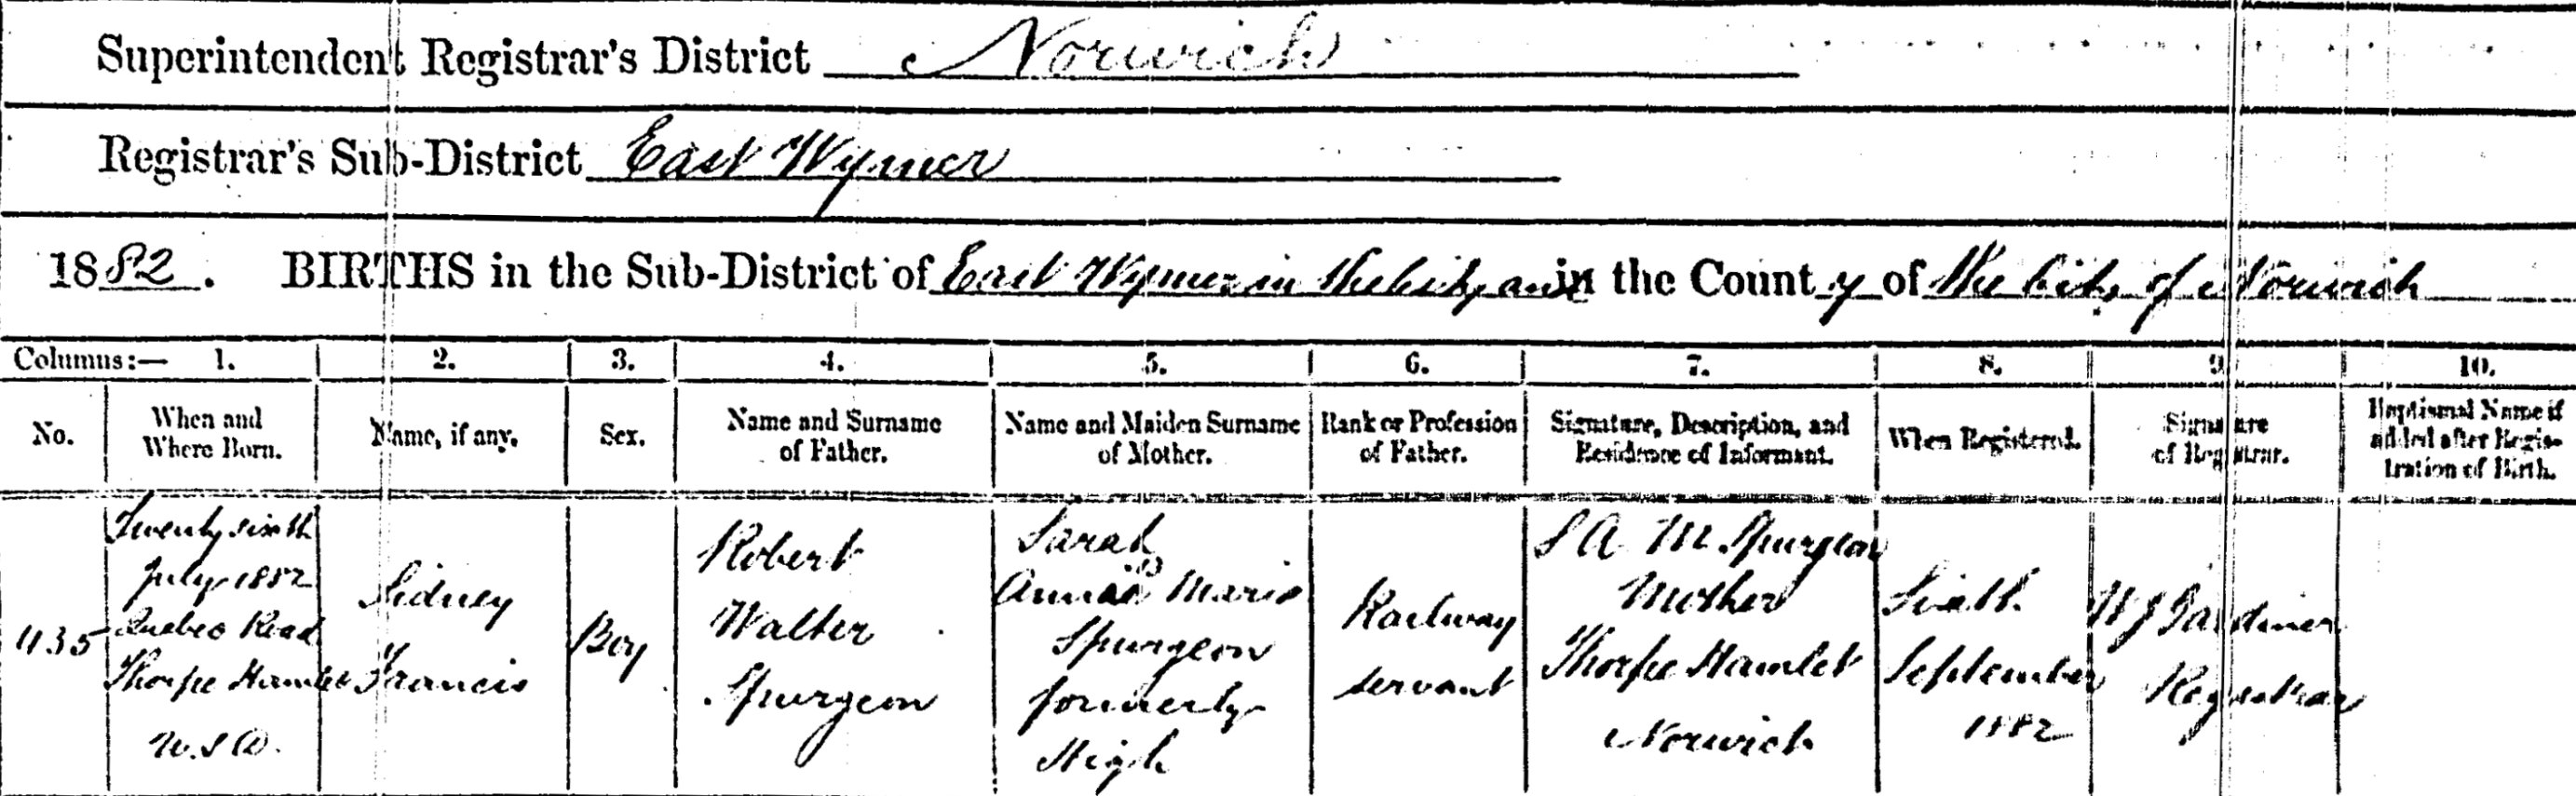 Superintendent Registrar's District Norwich
Registrar's Sub-District East Wymer
1882. BIRTHS in the Sub-District of East Wymer in the City and in the County of the City of Norwich
Columns:— 1. 2. 3. 4. 5. 6. 7. 8. 9 10.
No. When and Where Born. Name, if any. Sex. Name and Surname of Father. Name and Maiden Surname of Mother. Rank or Profession of Father. Signature, Description, and Residence of Informant. When Registered. Signature of Registrar. Baptismal Name if added after Registration of Birth.
435
Twenty sixth
July 1882
Quebec Road
Thorpe Hamlet
U.S.D.
Sidney
Francis
Boy
Robert
Walter
Spurgeon
Sarah
Annie Maria
Spurgeon
formerly
High
Railway
servant
S A M Spurgeon
Mother
Thorpe Hamlet
Norwich
Sixth
September
1882
W J Gardiner
Registrar